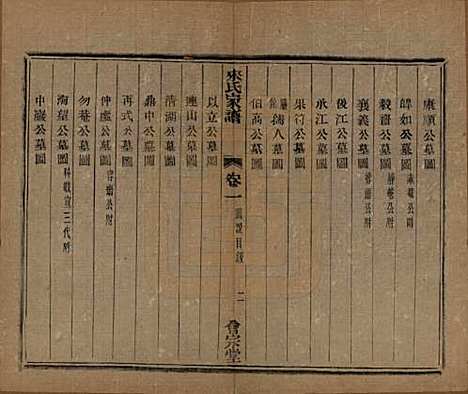 康順公墓圖
皥如公墓圖 永菴公附
毅齋公墓圖 靜菴公附
襄義公墓圖 容齋公附
後江公墓圖
承江公墓圖
果行公墓圖
孺人墓圖
伯高公墓圖
來氏家譜 卷一 圖說目錄 二 會宗堂
以立公墓圖
連山公墓圖
清湖公墓圖
鼎中公墓圖
再式公墓圖
仲虛公墓圖 容齋公附
勿菴公墓圖
海望公墓圖 科戰宣三代附
中巖公墓圖